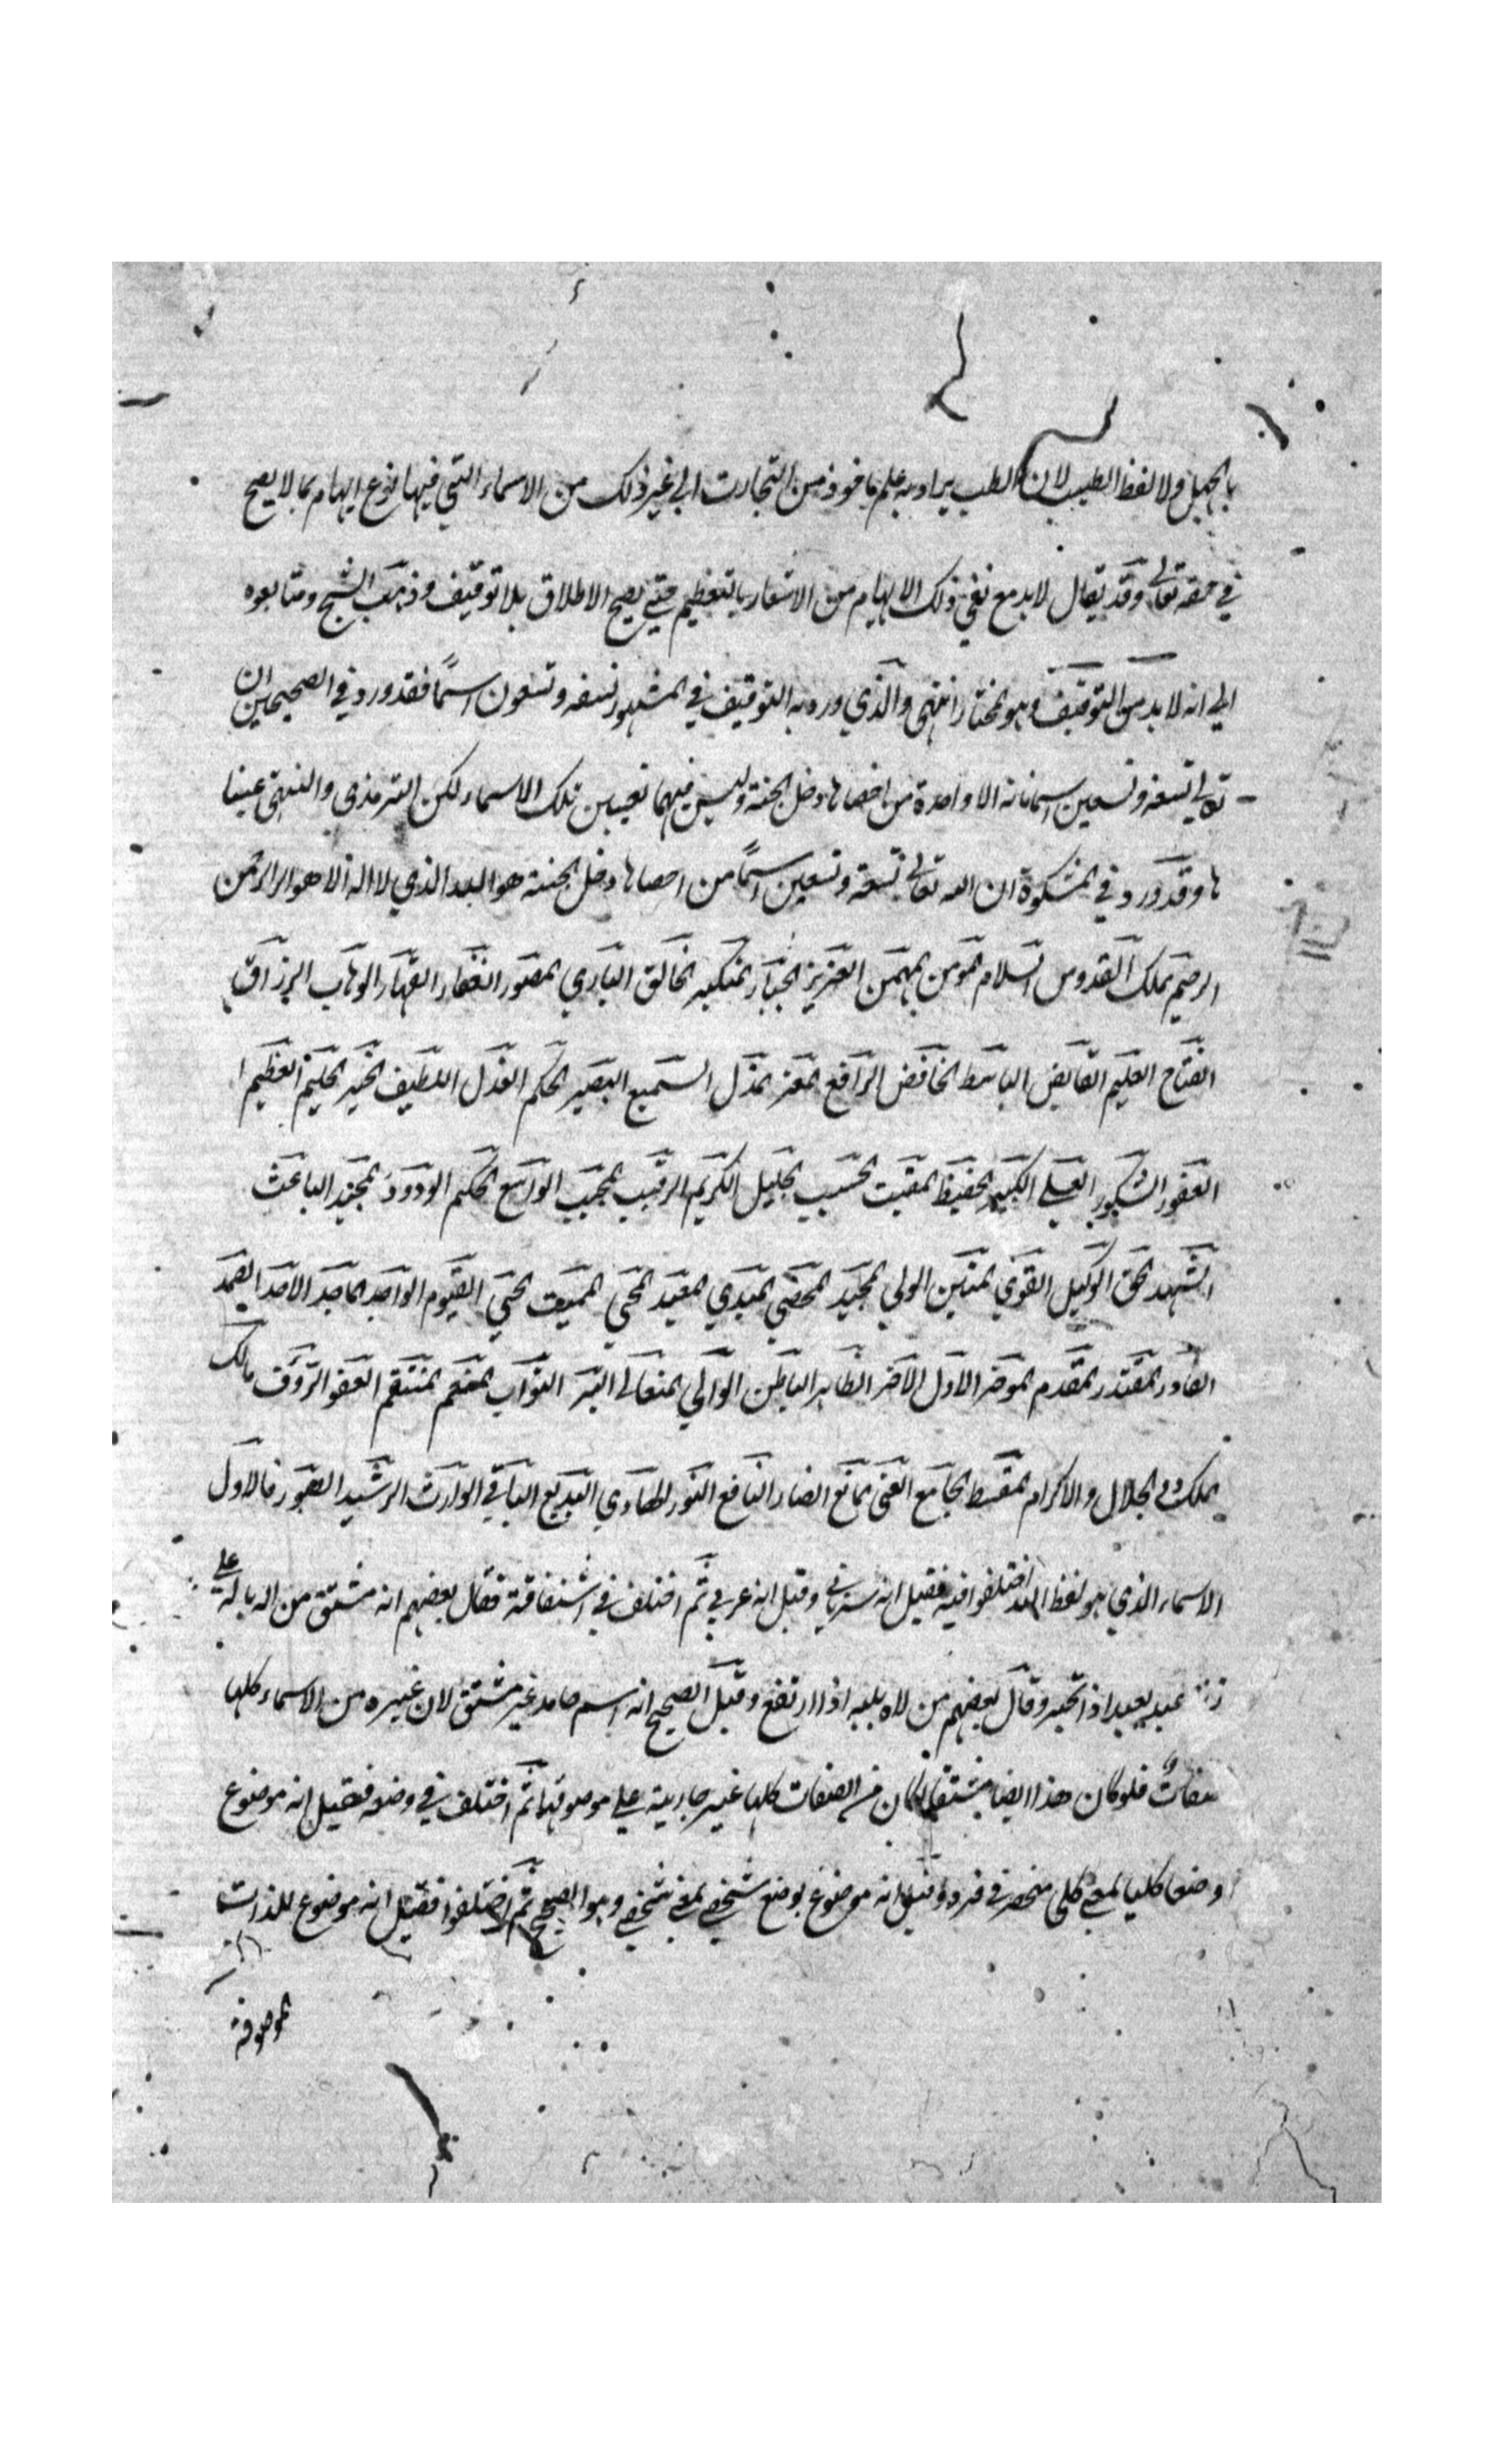 بالجهل ولا لفظ الطبيب لان الطب يراد به علم ماخوذ من التجارب الى غير ذلك من الاسماء التي فيها نوع ايهام بما لا يصح
في حقه تعالى وقد يقال لا بد مع نفي ذلك الايهام من الاشعار بالتعظيم حتى يصح الاطلاق بلا توقيف وذهب الشيخ ومتابعوه
الي انه لا بد من التوقيف وهو المختار انتهى والذي ورد به التوقيف في المشهور تسعه وتسعون اسمًا فقد ورد في الصحيحين ان
تعالى تسعه وتسعين اسما مائه الا واحدة من احصاها دخل الجنة وليس فيهما تعيين تلك الاسماء لكن الترمذي والبيهقي عينا
ها وقد ورد في المشكوة ان الله تعالى تسعة وتسعين اسمًا من احصاها دخل الجنة هو الله الذي لا اله الا هو الرحمن
الرحيم الملك القدوس السلام المومن المهيمن العزيز الجبار المتكبر الخالق الباري المصور الغفار القهار الوهاب الرزاق
الفتاح العليم القابض الباسط الخافض الرافع المعز المذل السميع البصير الحكم العدل اللطيف الخبير الحليم العظيم ا
الغفور الشكور العلي الكبير الحفيظ المقيت الحسيب الجليل الكريم الرقيب المجيب الواسع الحكيم الودود المجيد الباعث
الشهيد الحق الوكيل القوي المتين الولي المجيد المحصي المبدي المعيد المحي المميت الحي القيوم الواجد الماجد الاحد الصمد
القادر المقتدر المقدم الموخر الاول الاخر الظاهر الباطن الوالي المتعالي البر التواب المنعم المنتقم العفو الرؤف مالك
الملك ذي الجلال والاكرام المقسط الجامع الغني المانع الضار النافع النور الهادي البديع الباقي الوارث الرشيد الصبور فالاول
الاسماء الذي هو لفظ الله اختلفوا فيه فقيل انه سرياني وقيل انه عربي ثم اختلف في اشتقاقه فقال بعضهم انه مشتق من اله ياله على
عبد يعبد اذا تحير وقال بعضهم من لاه يليه اذا ارتفع وقيل الصحيح انه اسم جامد غير مشتق لان غيره من الاسماء كلها
صفات فلو كان هذا ايضا مشتقا لكان الصفات كلها غير جارية على موصوفها ثم اختلف في وضعه فقيل انه موضوع
وضعا كليا لمعنى كلي منحصر في فرد وقيل انه موضوع بوضع شخصي لمعنى شخصي وهو الصحيح ثم اختلفوا فقيل انه موضوع للذات
الموصوفة